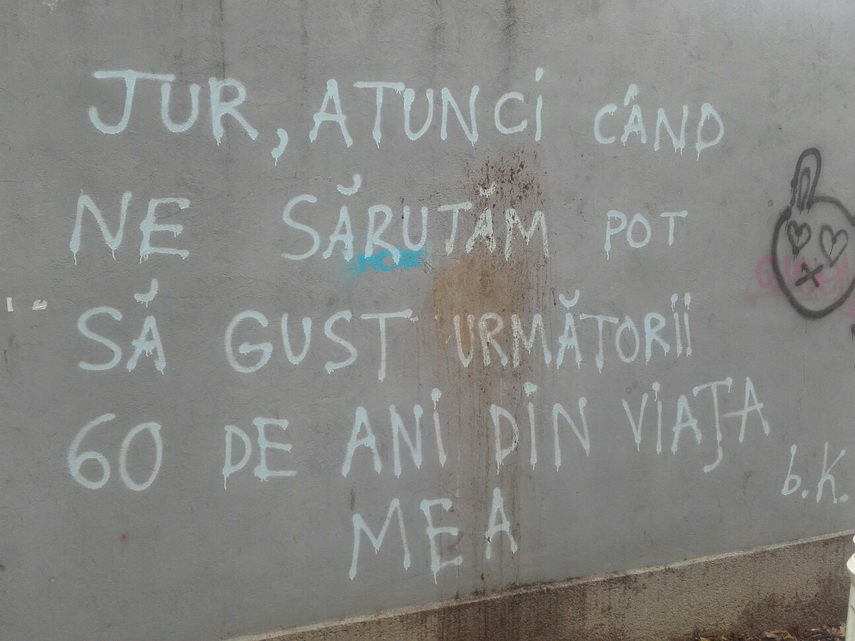 JUR, ATUNCI CÂND
NE SĂRUTĂM POT
SĂ GUST URMĂTORII
60 DE ANI DIN VIAȚA
MEA
b.K.